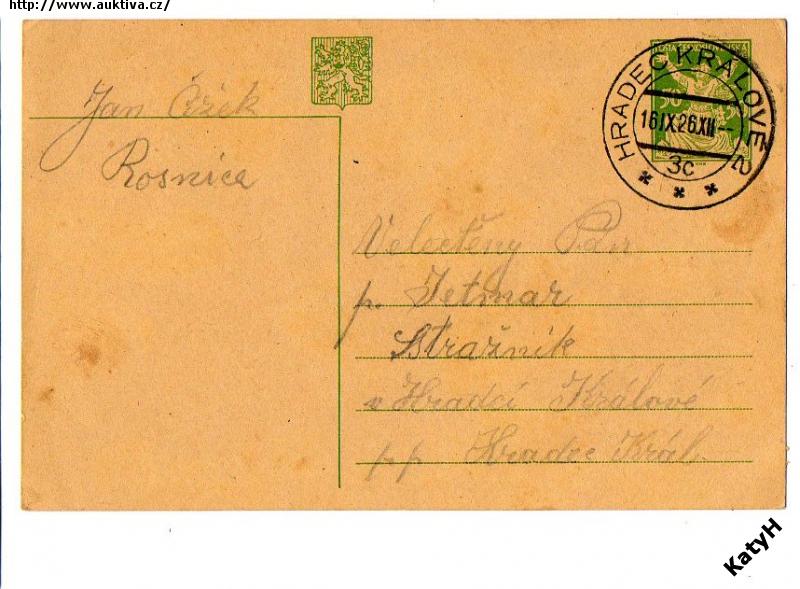 http://www.auktiva.cz/
Jan Čížek
Rosnice
POŠTA ČESKOSLOVENSKÁ
50
HRADEC KRÁLOVÉ 2
16.IX.26.XII--
3c
Velectěny Pán
p. Jetmar
Stražnik
v Hradci Králové
pp Hradec Král.
KatyH